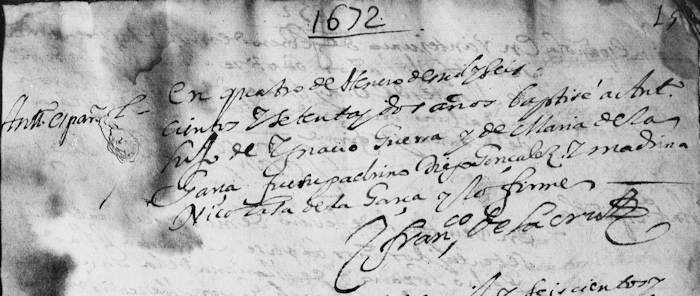 1672
15
Antt. español
En quatro de Henero de mil y seis
cientos y setenta y dos años baptisé a Ant.
hijo de Ygnacio Guerra y de Maria de la
Garça fue su padrino Diego Gonçalez y madrina
Nicolasa de la Garça y lo firmé
Fran.co de la Cruz
y seiscientos y